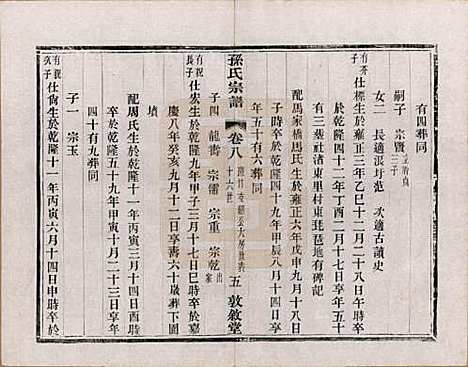 有四葬同
嗣子 宗賢
女二 長適張圩范 次適古讀史
仕標生於雍正三年乙巳十二月二十八日午時卒
於乾隆四十二年丁酉二月十七日享年五十
有三葬社渚東里村東琵琶地有碑記
配馬家橋馬氏生於雍正六年戊申九月十八日
子時卒於乾隆四十九年甲辰八月十四日享
年五十有六葬同
孫氏宗譜 卷八 十六世 五 敦敘堂
子四 龍壽 宗儒 宗重 宗乾 出家
有祝長子 仕宏生於乾隆九年甲子三月十三日巳時卒於嘉
慶八年癸亥九月十二日享壽六十歲葬下圖
墳
配周氏生於乾隆十一年丙寅三月十四日酉時
卒於乾隆五十九年甲寅十二月二十三日享年
四十有九葬同
子一 宗玉
有祝次子 仕尙生於乾隆十一年丙寅六月十四日申時卒於